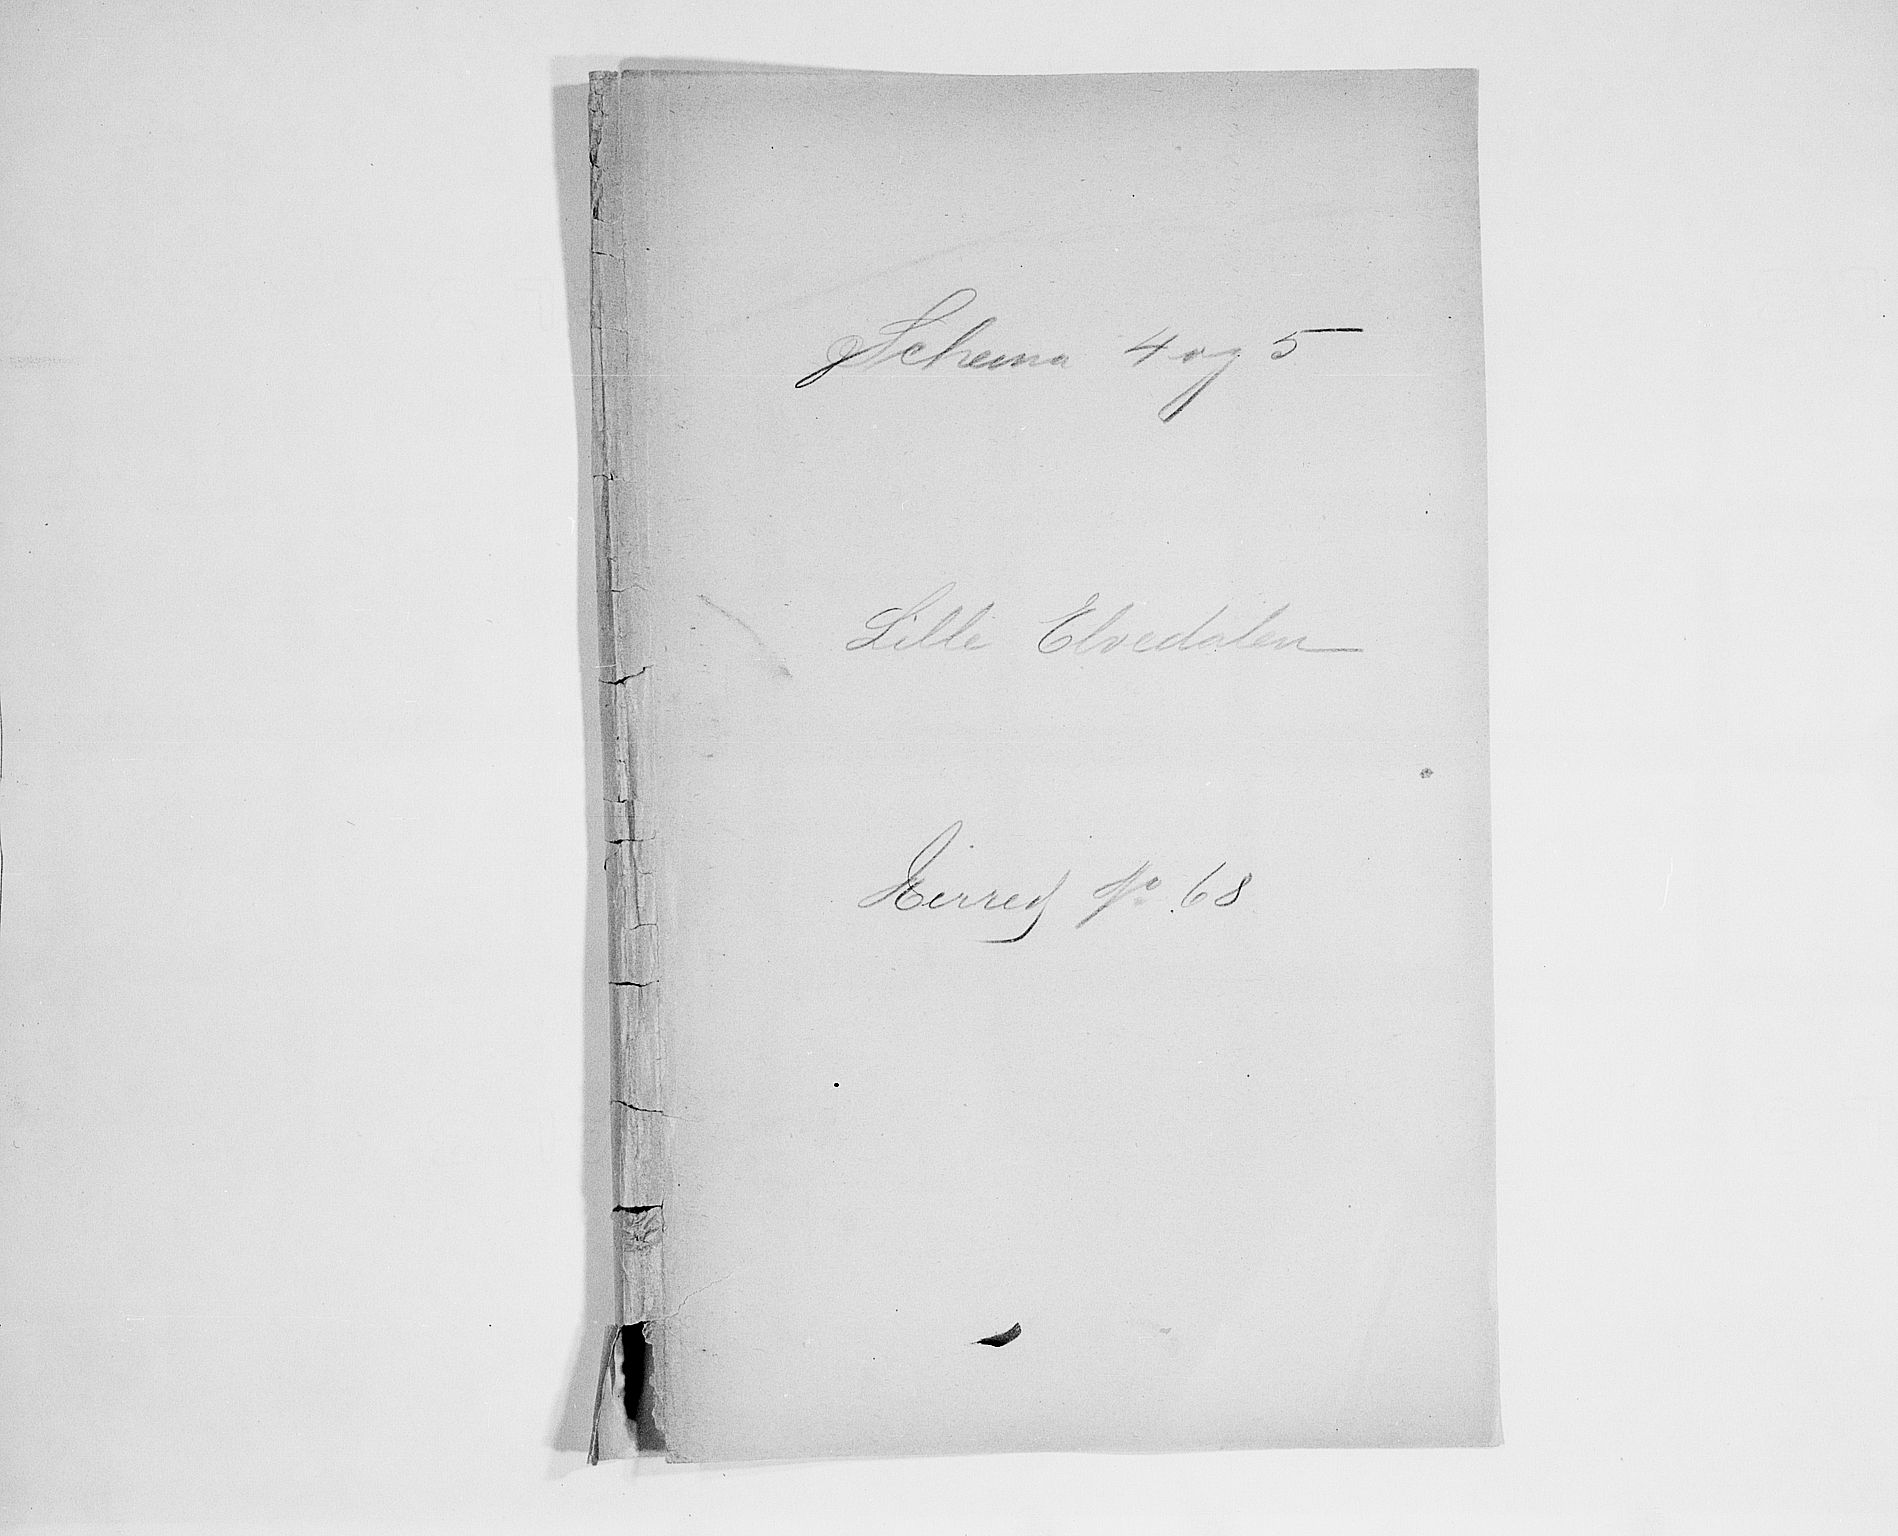 Schema 4 og 5
Lille Elvedalen
Herred No 68